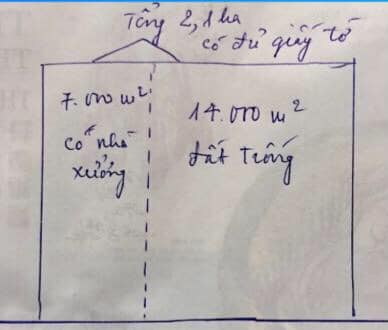 Tổng 2,1 ha
có đủ giấy tờ
7.000 m²
có nhà
xưởng
14.000 m²
đất trống